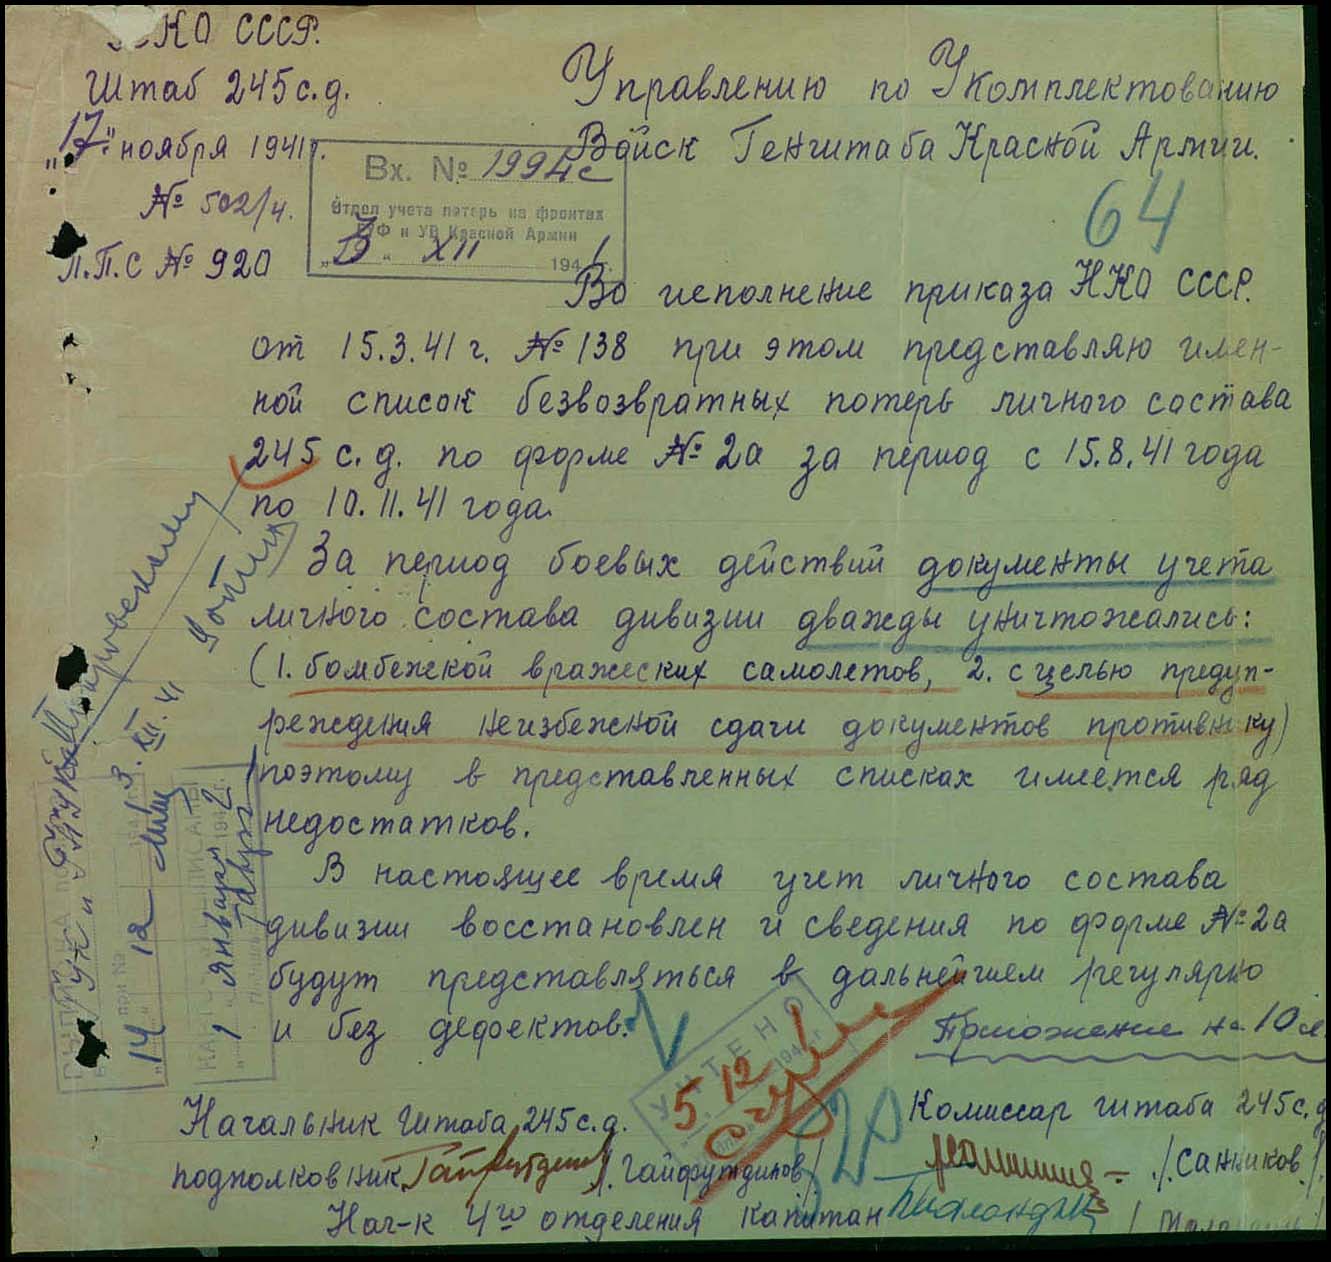 НКО СССР.
Штаб 245 с.д.
"17" ноября 1941 г.
№ 502/4.
П.П.С № 920
Управлению по Укомплектованию
Войск Генштаба Красной Армии.
Вх. № 1994с
Отдел учета потерь на фронтах
и УВ Красной Армии
"3" XII 1941 г.
64
Во исполнение приказа НКО СССР.
от 15.3.41 г. № 138 при этом представляю имен-
ной список безвозвратных потерь личного состава
245 с.д. по форме № 2а за период с 15.8.41 года
по 10.11.41 года.
За период боевых действий документы учета
личного состава дивизии дважды уничтожались:
(1. бомбежкой вражеских самолетов, 2. с целью предуп-
реждения неизбежной сдачи документов противнику)
поэтому в представленных списках имеется ряд
недостатков.
В настоящее время учет личного состава
дивизии восстановлен и сведения по форме № 2а
будут представляться в дальнейшем регулярно
и без дефектов.
Приложение на 10 л.
3.XII.41
"14" 12
"1" января 1942 г.
УЧТЕНО
5 12 1941 г.
Начальник штаба 245 с.д.
подполковник /Гайфутдинов/
Комиссар штаба 245 с.д.
/Санников/
Нач-к 4го отделения капитан